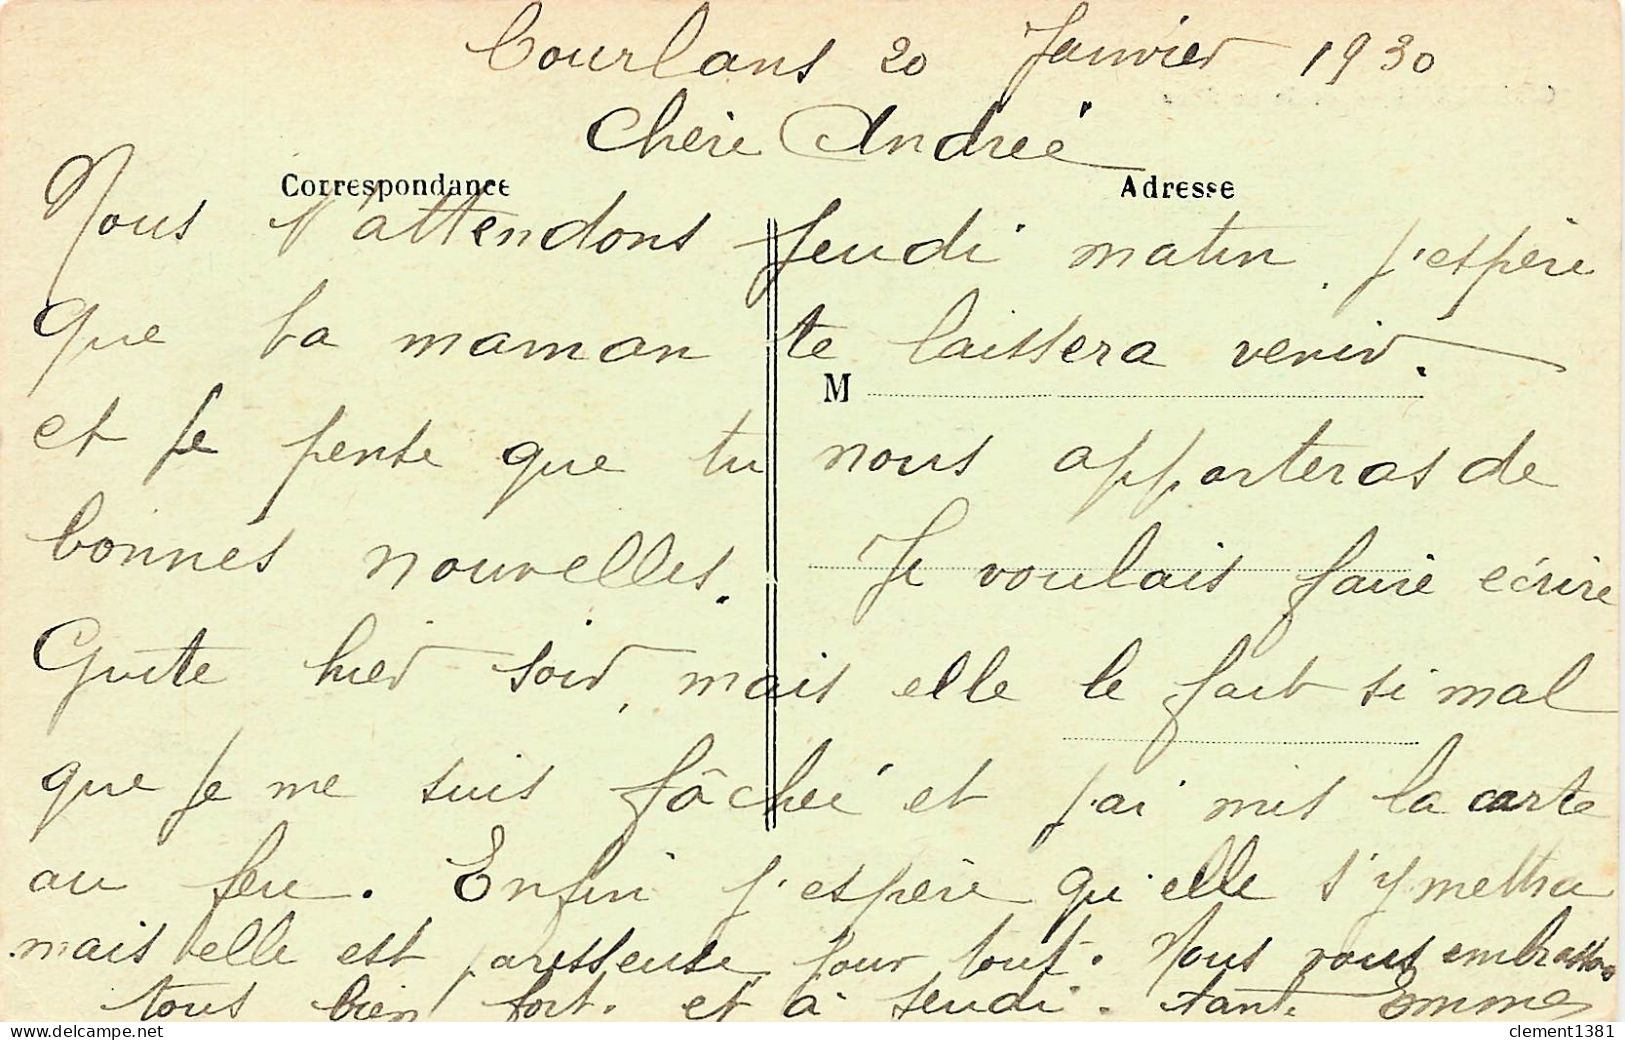 Courlans 20 Janvier 1930
Chère Andrée
Correspondance
Adresse
Nous t'attendons Jeudi matin, j'espère
que ta maman te laissera venir.
M
et je pense que tu nous apporteras de
bonnes nouvelles. Je voulais faire écrire
Guite hier soir, mais elle le fait si mal
que je me suis fâchée et j'ai mis la carte
au feu. Enfin j'espère qu'elle s'y mettra
mais elle est paresseuse pour tout. Nous vous embrassons
tous bien fort. et à jeudi. tante Emma
clement1381